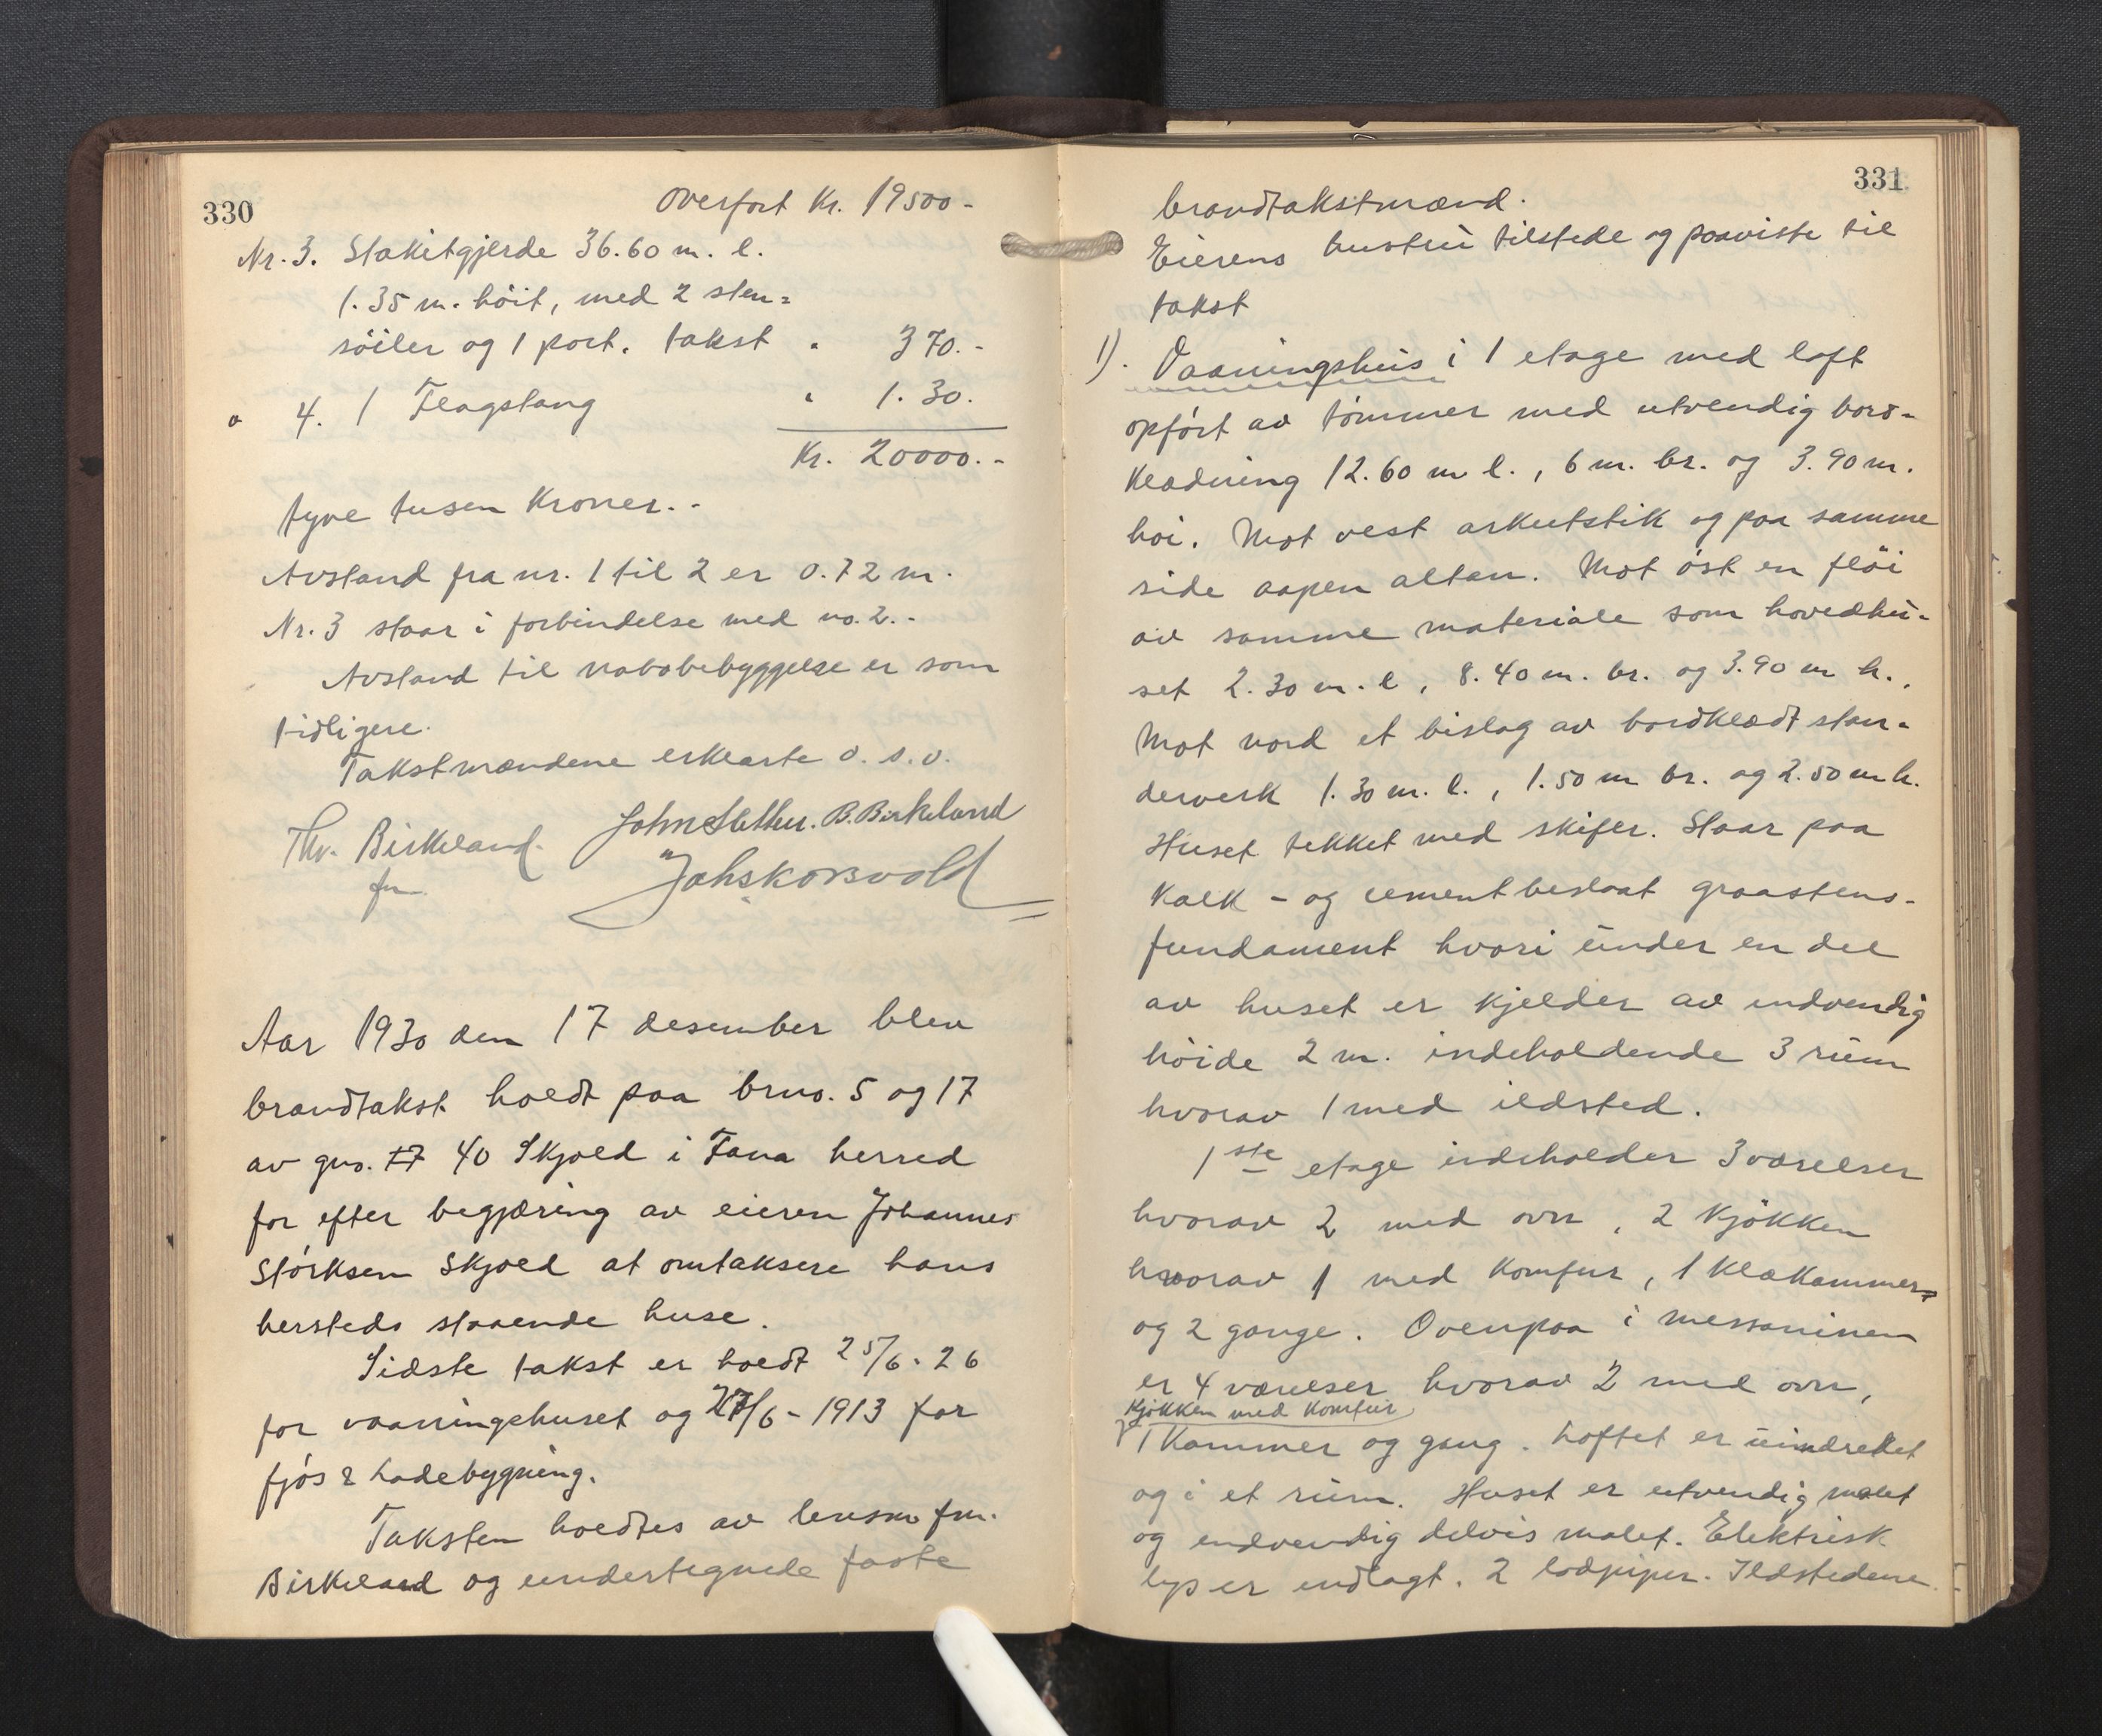 330
Overført Kr. 19500-
Nr. 3. Stakitgjerde 36.60 m. l.
1.35 m. höit, med 2 sten=
söiler og 1 port. takst " 370.-
" 4. 1 Flagstang " 1.30.
Kr. 20000.-
tyve tusen Kroner.-
Avstand fra nr. 1 til 2 er 0.72 m.
Nr. 3 staar i forbindelse med no. 2.-
Avstand til nabobebyggelse er som
tidligere.
Takstmændene erklærte o. s. v.
Thv. Birkeland. John Sletten. B. Birkeland
fm
Aar 1930 den 17 desember blev
brandtakst holdt paa brno. 5 og 17
av gno. 17 40 Skjold i Fana herred
for efter begjæring av eieren Johannes
Størksen Skjold at omtaksere hans
hersteds staaende huse.
Sidste takst er holdt 25/6.26
for vaaningshuset og 27/6-1913 for
fjös & ladebygning.
Taksten holdtes av lensm fm.
Birkeland og undertegnede faste
331
brandtakstmænd.
Eierens hustru tilstede og paaviste til
takst
1). Vaaningshus i 1 etage med loft
opført av tömmer med utvendig bord-
klædning 12.60 m l., 6 m. br. og 3.90 m.
höi. Mot vest arkutstik og paa samme
side aapen altan. Mot öst en flöi
av samme materiale som hovedhu-
set 2.30 m. l, 8.40 m. br. og 3.90 m h.,
Mot nord et bislag av bordklædt stan-
derverk 1.30 m. l., 1.50 m br. og 2.50 m h.
Huset tekket med skifer. Staar paa
Kalk - og cementbeslaat graastens-
fundament hvori under en del
av huset er kjelder av indvendig
höide 2 m. indeholdende 3 rum
hvorav 1 med ildsted.
1ste etage indeholder 3 værelser
hvorav 2 med ovn, 2 Kjökken
hvorav 1 med Komfur, 1 Klækammer
og 2 gange. Ovenpaa i messaninen
er 4 værelser hvorav 2 med ovn,
Kjökken med Komfur
1 Kammer og gang. Loftet er uindredet
og i et rum. Huset er utvendig malet
og indvendig delvis malet. Elektrisk
lys er indlagt. 2 lodpiper. Ildstedene